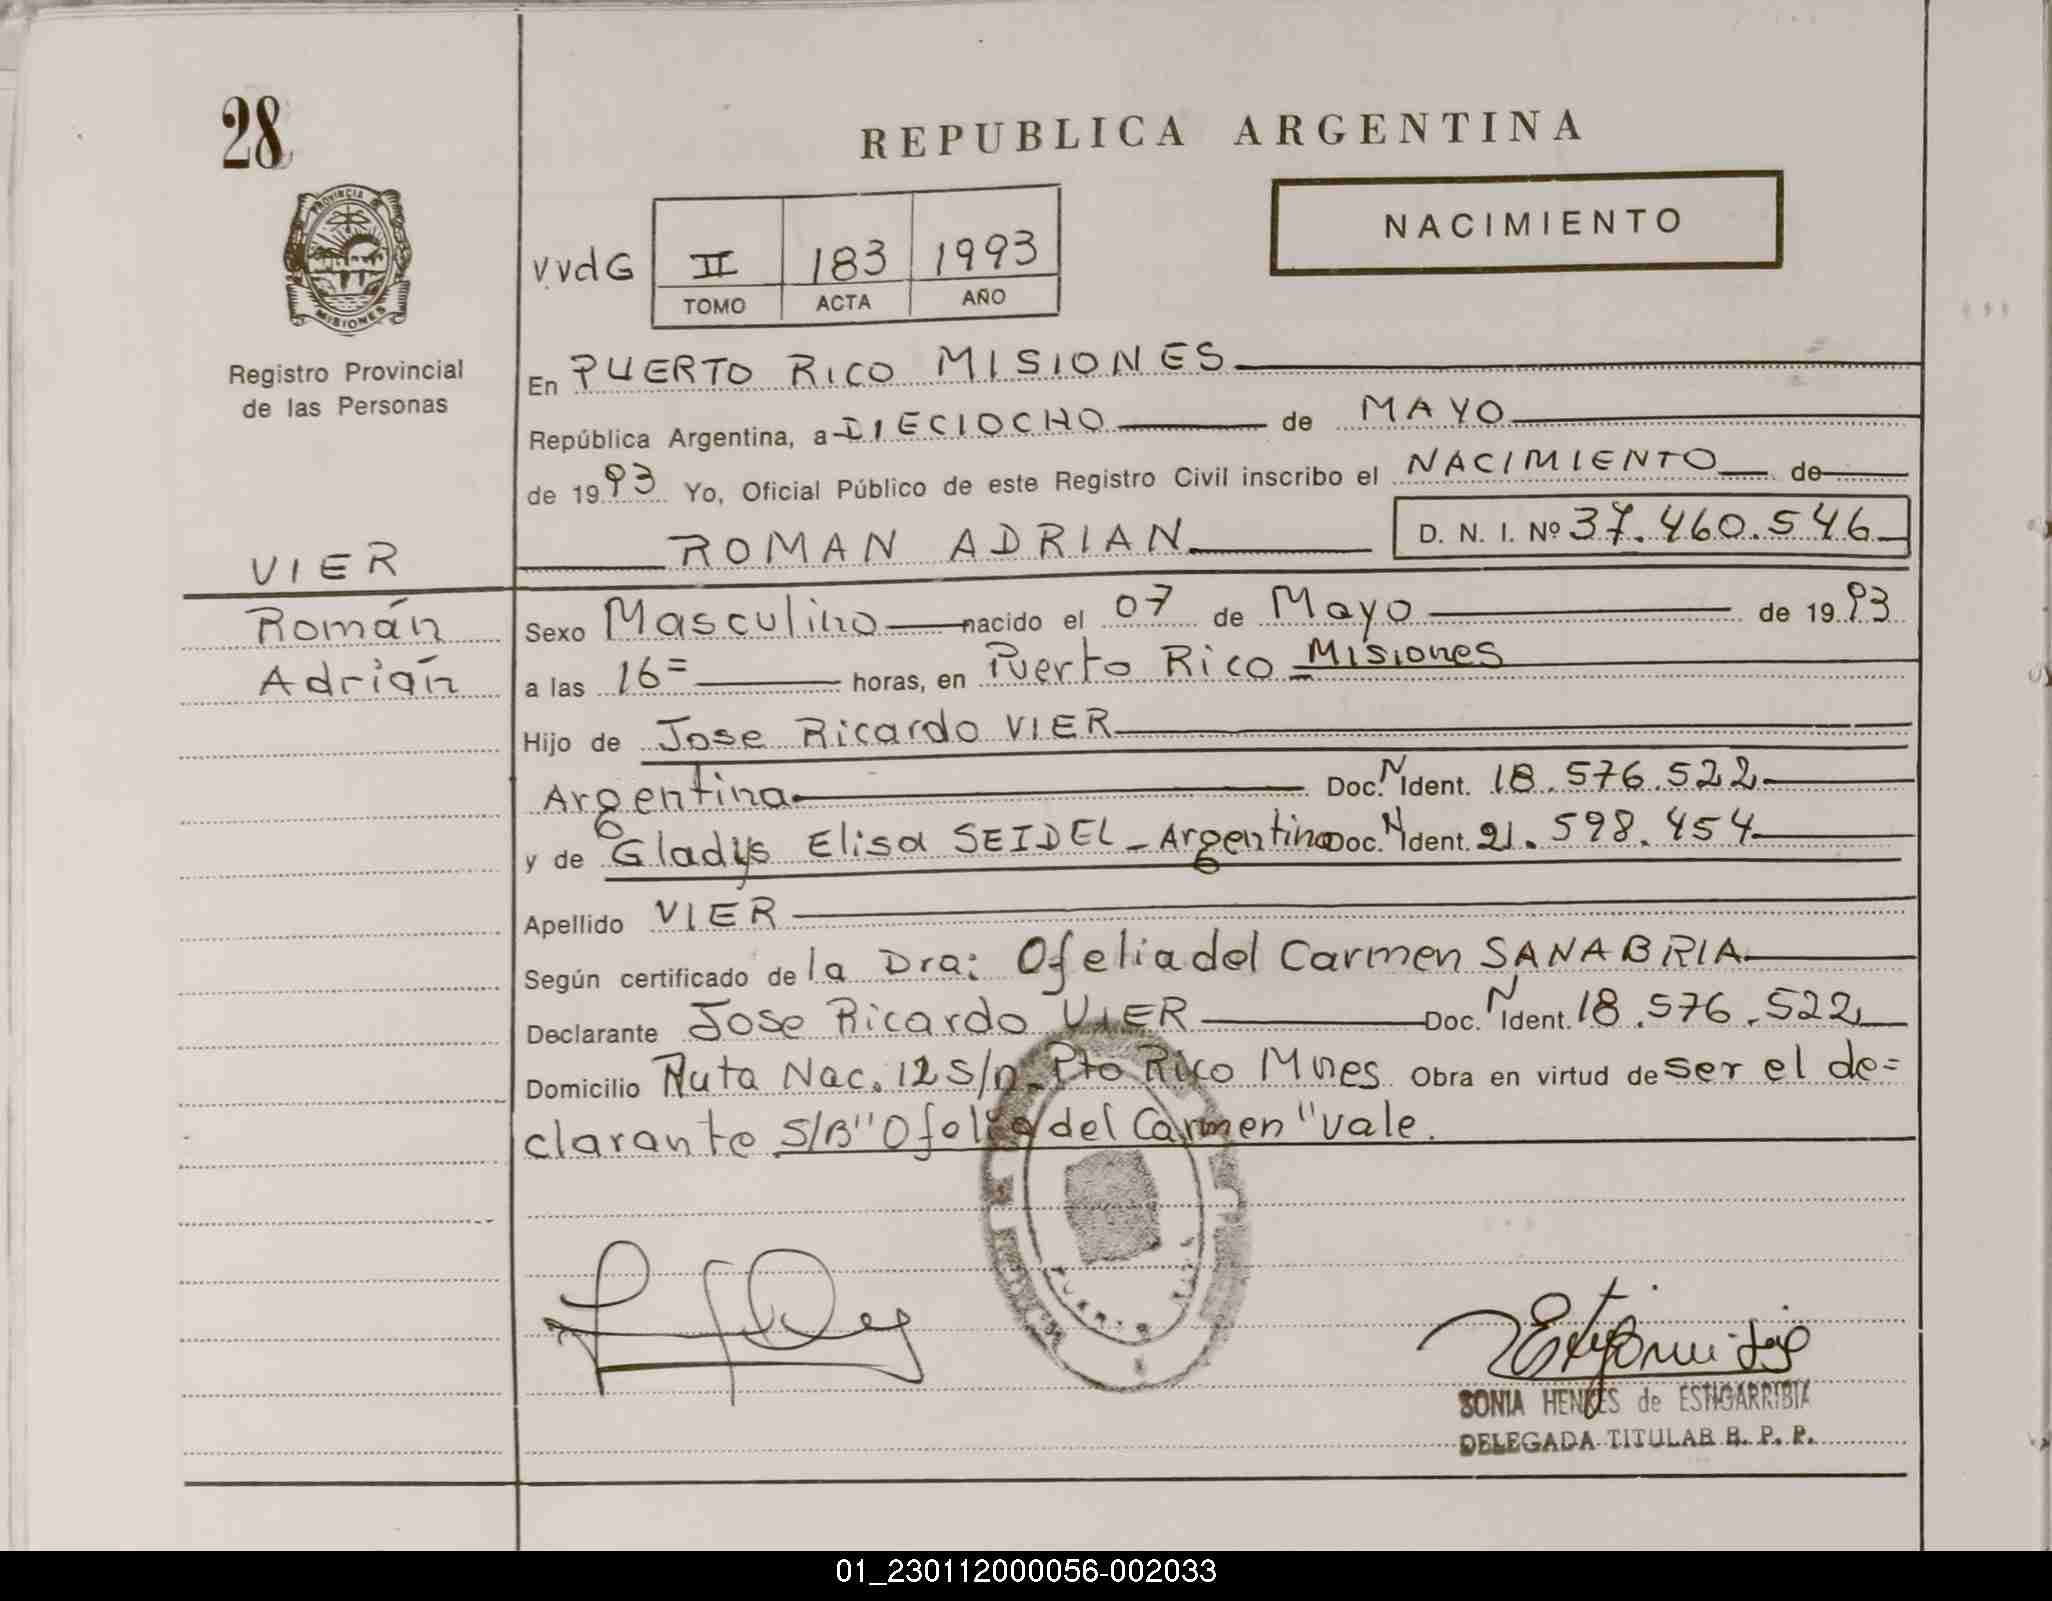 28
REPUBLICA ARGENTINA
NACIMIENTO
PROVINCIA DE
MISIONES
Registro Provincial
de las Personas
VVdG II 183 1993
TOMO ACTA AÑO
En PUERTO RICO MISIONES
República Argentina, a DIECIOCHO de MAYO
de 1993 Yo, Oficial Público de este Registro Civil inscribo el NACIMIENTO de
ROMAN ADRIAN D. N. I. Nº 37.460.546
VIER
Román
Adrián
Sexo Masculino nacido el 07 de Mayo de 1993
a las 16= horas, en Puerto Rico Misiones
Hijo de Jose Ricardo VIER
Argentina Doc. N Ident. 18.576.522
y de Gladys Elisa SEIDEL - Argentina Doc. N Ident. 21.598.454
Apellido VIER
Según certificado de la Dra: Ofelia del Carmen SANABRIA
Declarante Jose Ricardo VIER Doc. N Ident. 18.576.522
Domicilio Ruta Nac. 12 S/n. Pto Rico Mnes Obra en virtud de ser el de=
clarante S/B "Ofelia del Carmen" Vale.
SONIA HENKES de ESTIGARRIBIA
DELEGADA TITULAR R. P. P.
01_230112000056-002033